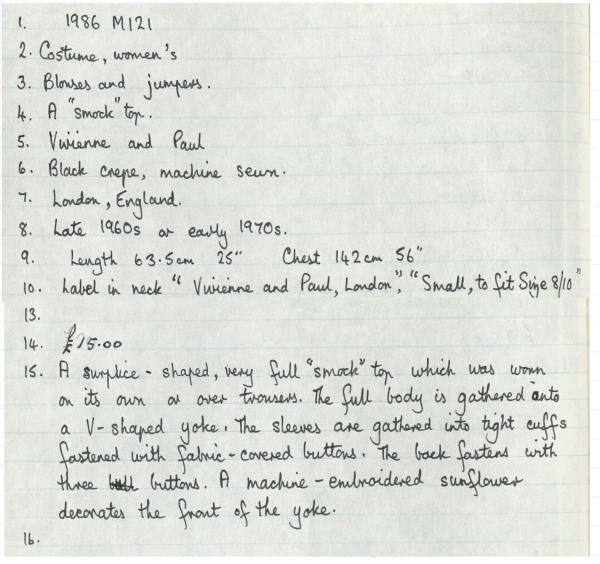 1. 1986 M121
2. Costume, women's
3. Blouses and jumpers.
4. A "smock" top.
5. Vivienne and Paul
6. Black crepe, machine sewn.
7. London, England.
8. Late 1960s or early 1970s.
9. Length 63.5cm 25" Chest 142cm 56"
10. Label in neck "Vivienne and Paul, London", "Small, to fit Size 8/10"
13.
14. £25.00
15. A surplice-shaped, very full "smock" top which was worn
on its own or over trousers. The full body is gathered onto
a V-shaped yoke. The sleeves are gathered into tight cuffs
fastened with fabric-covered buttons. The back fastens with
three buttons. A machine-embroidered sunflower
decorates the front of the yoke.
16.